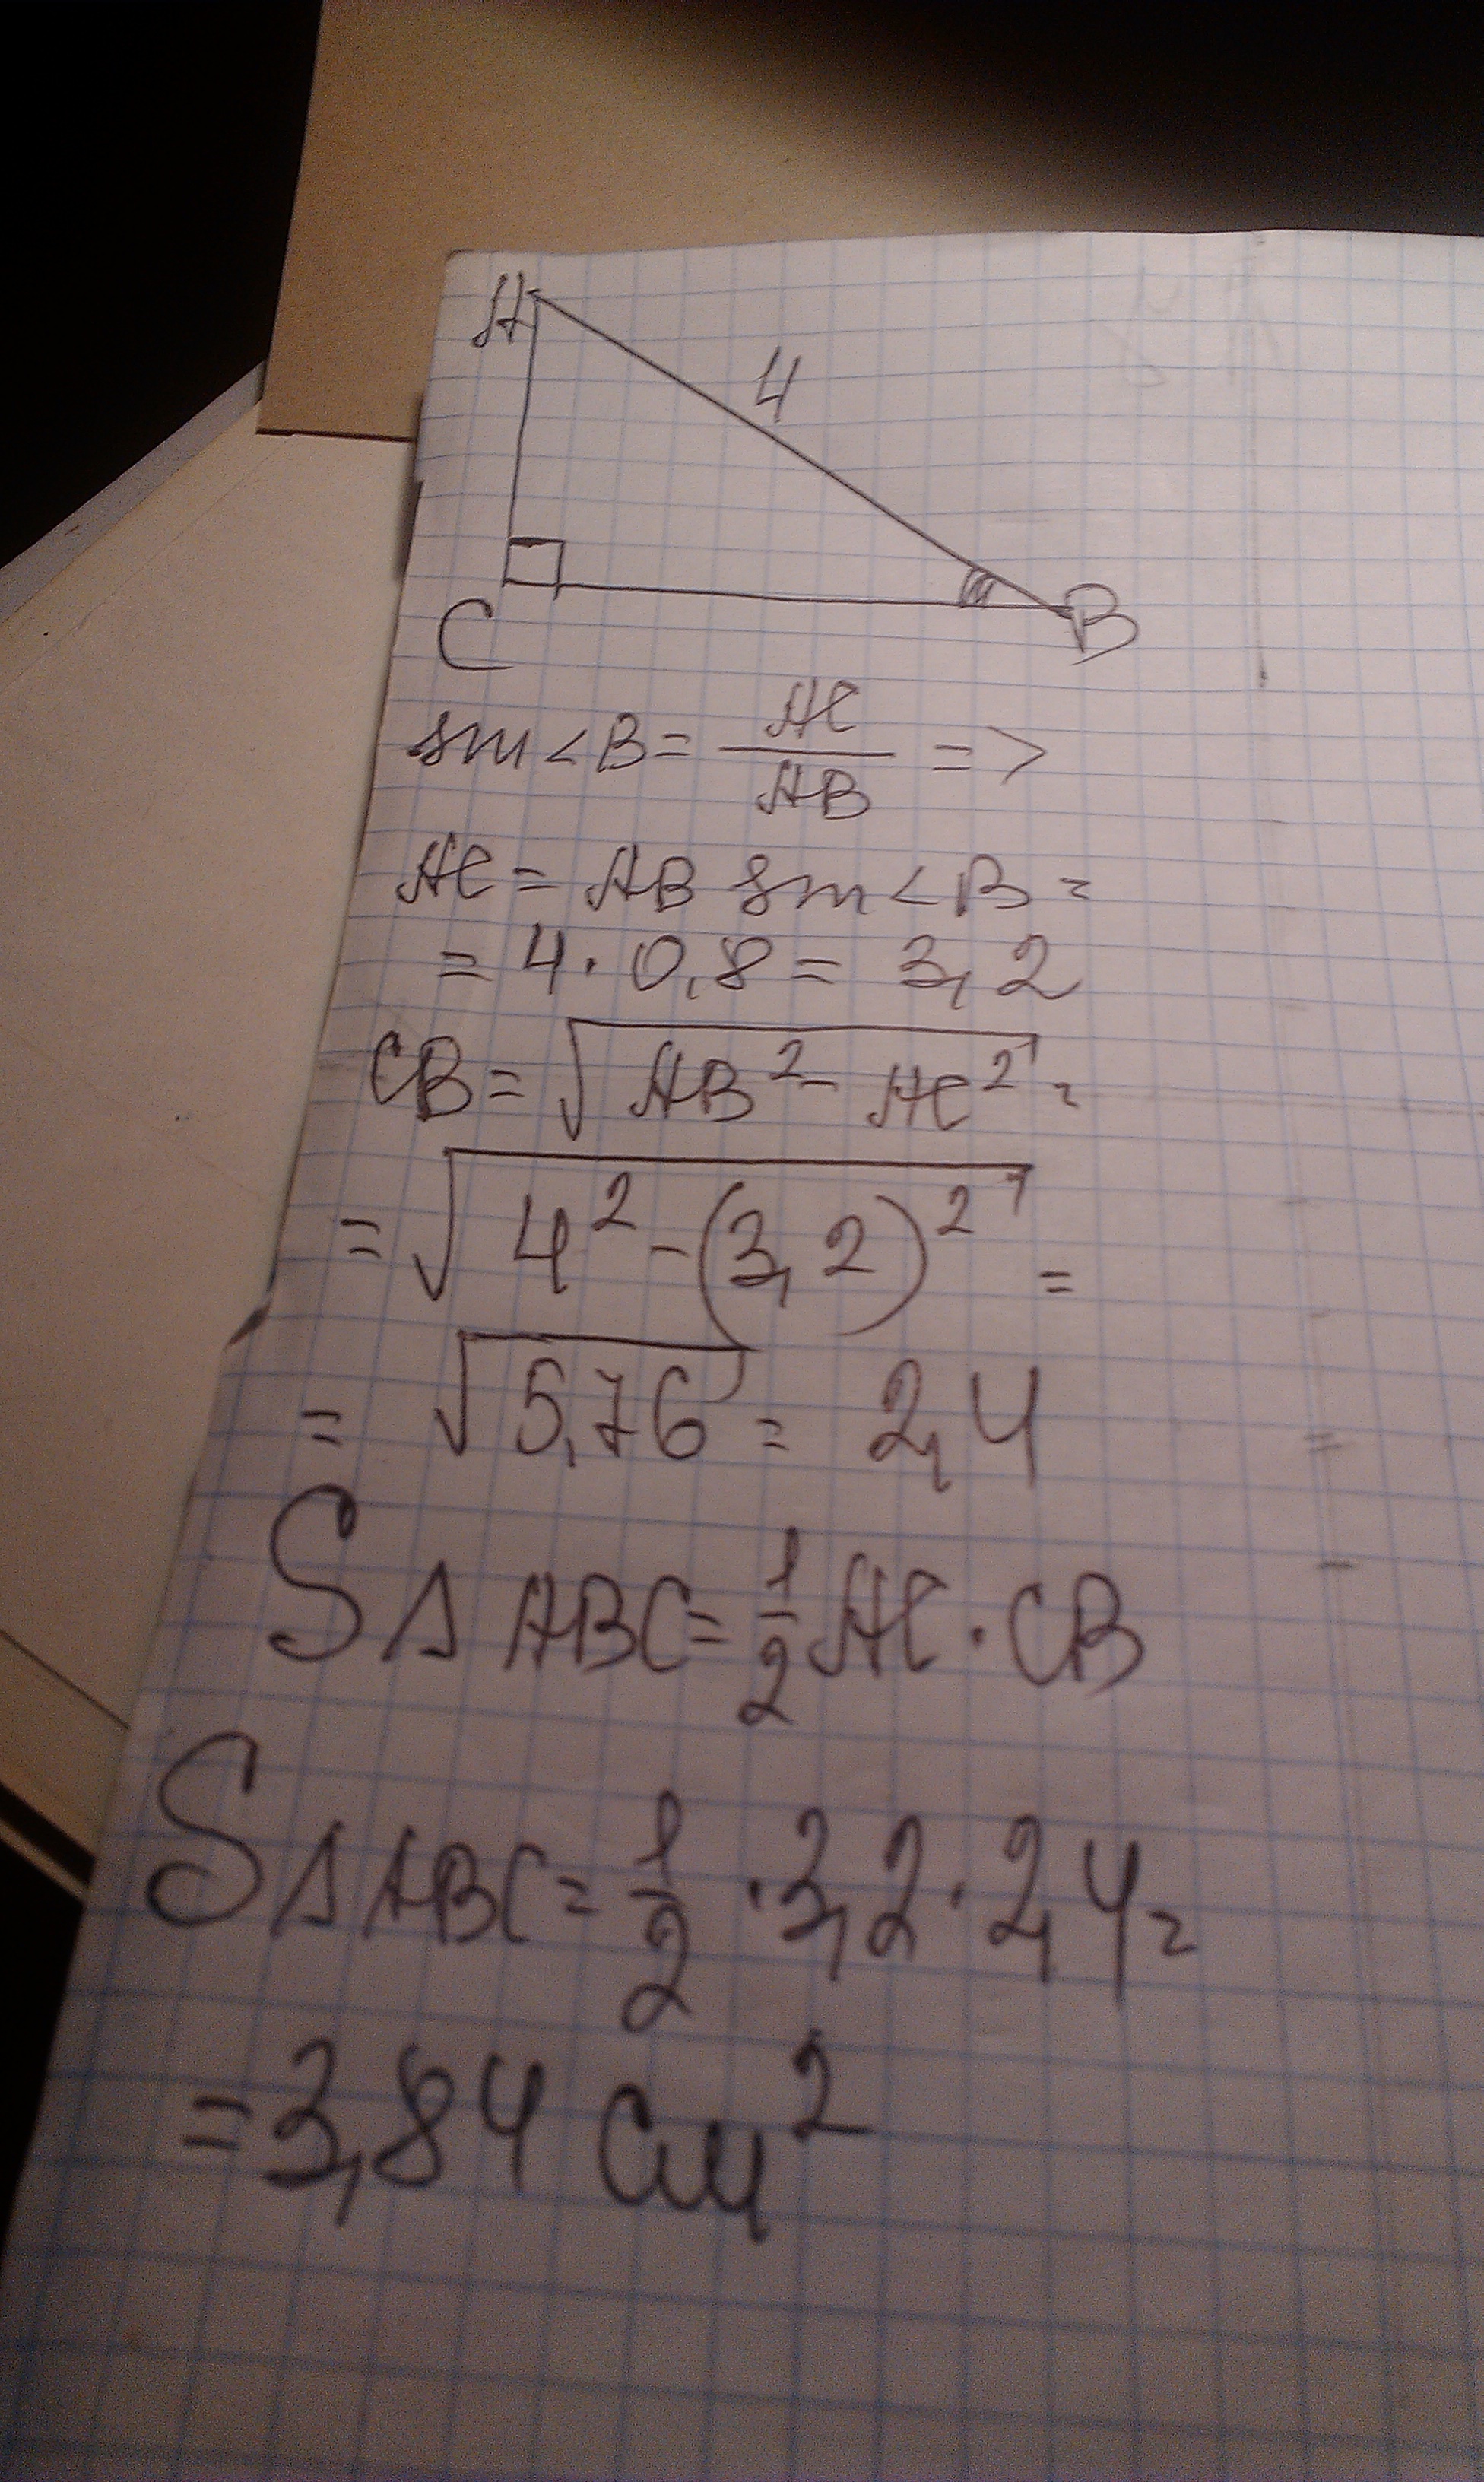 A
4
C
B
sin<B = AC/AB =>
AC = AB sin<B =
= 4·0,8 = 3,2
CB = √AB² - AC² =
= √4² - (3,2)² =
= √5,76 = 2,4
S△ABC = 1/2 AC·CB
S△ABC = 1/2 · 3,2 · 2,4 =
= 3,84 см²